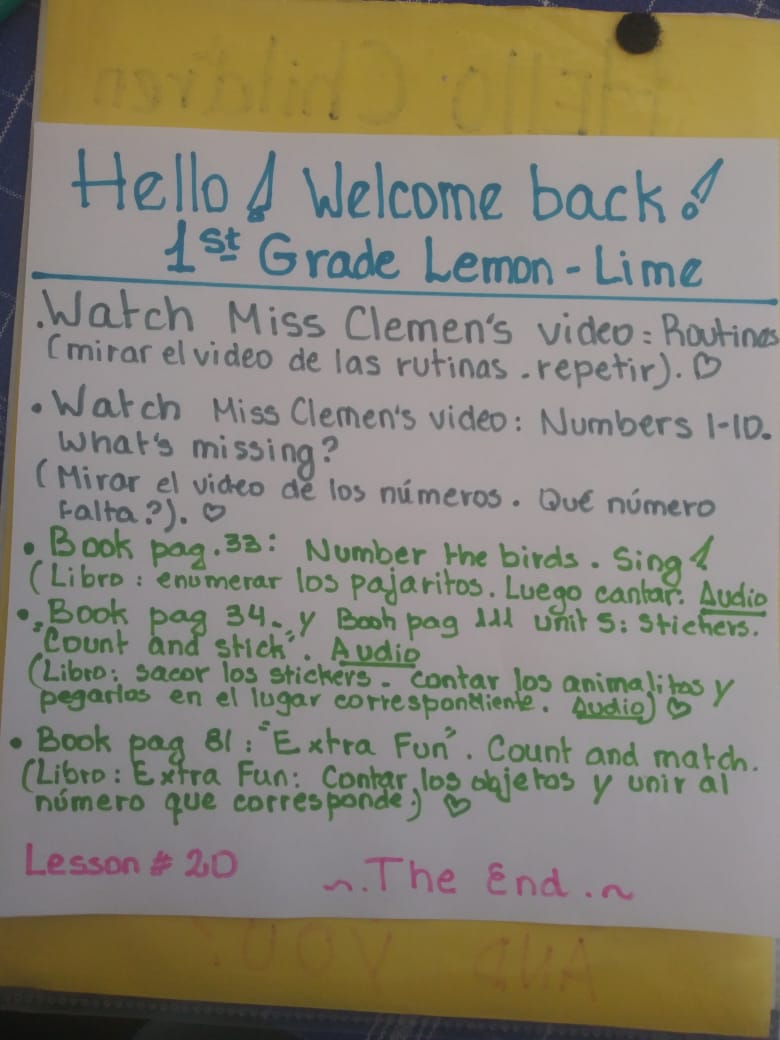 Hello! Welcome back!
1st Grade Lemon - Lime
. Watch Miss Clemen's video: Routines
(mirar el video de las rutinas . repetir). ♡
• Watch Miss Clemen's video: Numbers 1-10.
What's missing?
(Mirar el video de los números. Qué número
Falta?). ♡
• Book pag. 33: Number the birds. Sing!
(Libro: enumerar los pajaritos. Luego cantar. Audio
• Book pag 34. y Book pag 111 unit 5: stickers.
"Count and stick". Audio
(Libro: sacar los stickers - contar los animalitos y
pegarlos en el lugar correspondiente. Audio) ♡
• Book pag 81: "Extra Fun". Count and match.
(Libro: Extra Fun: Contar los objetos y unir al
número que corresponde.) ♡
Lesson # 20
~. The End .~
Hello Children
AND YOU?